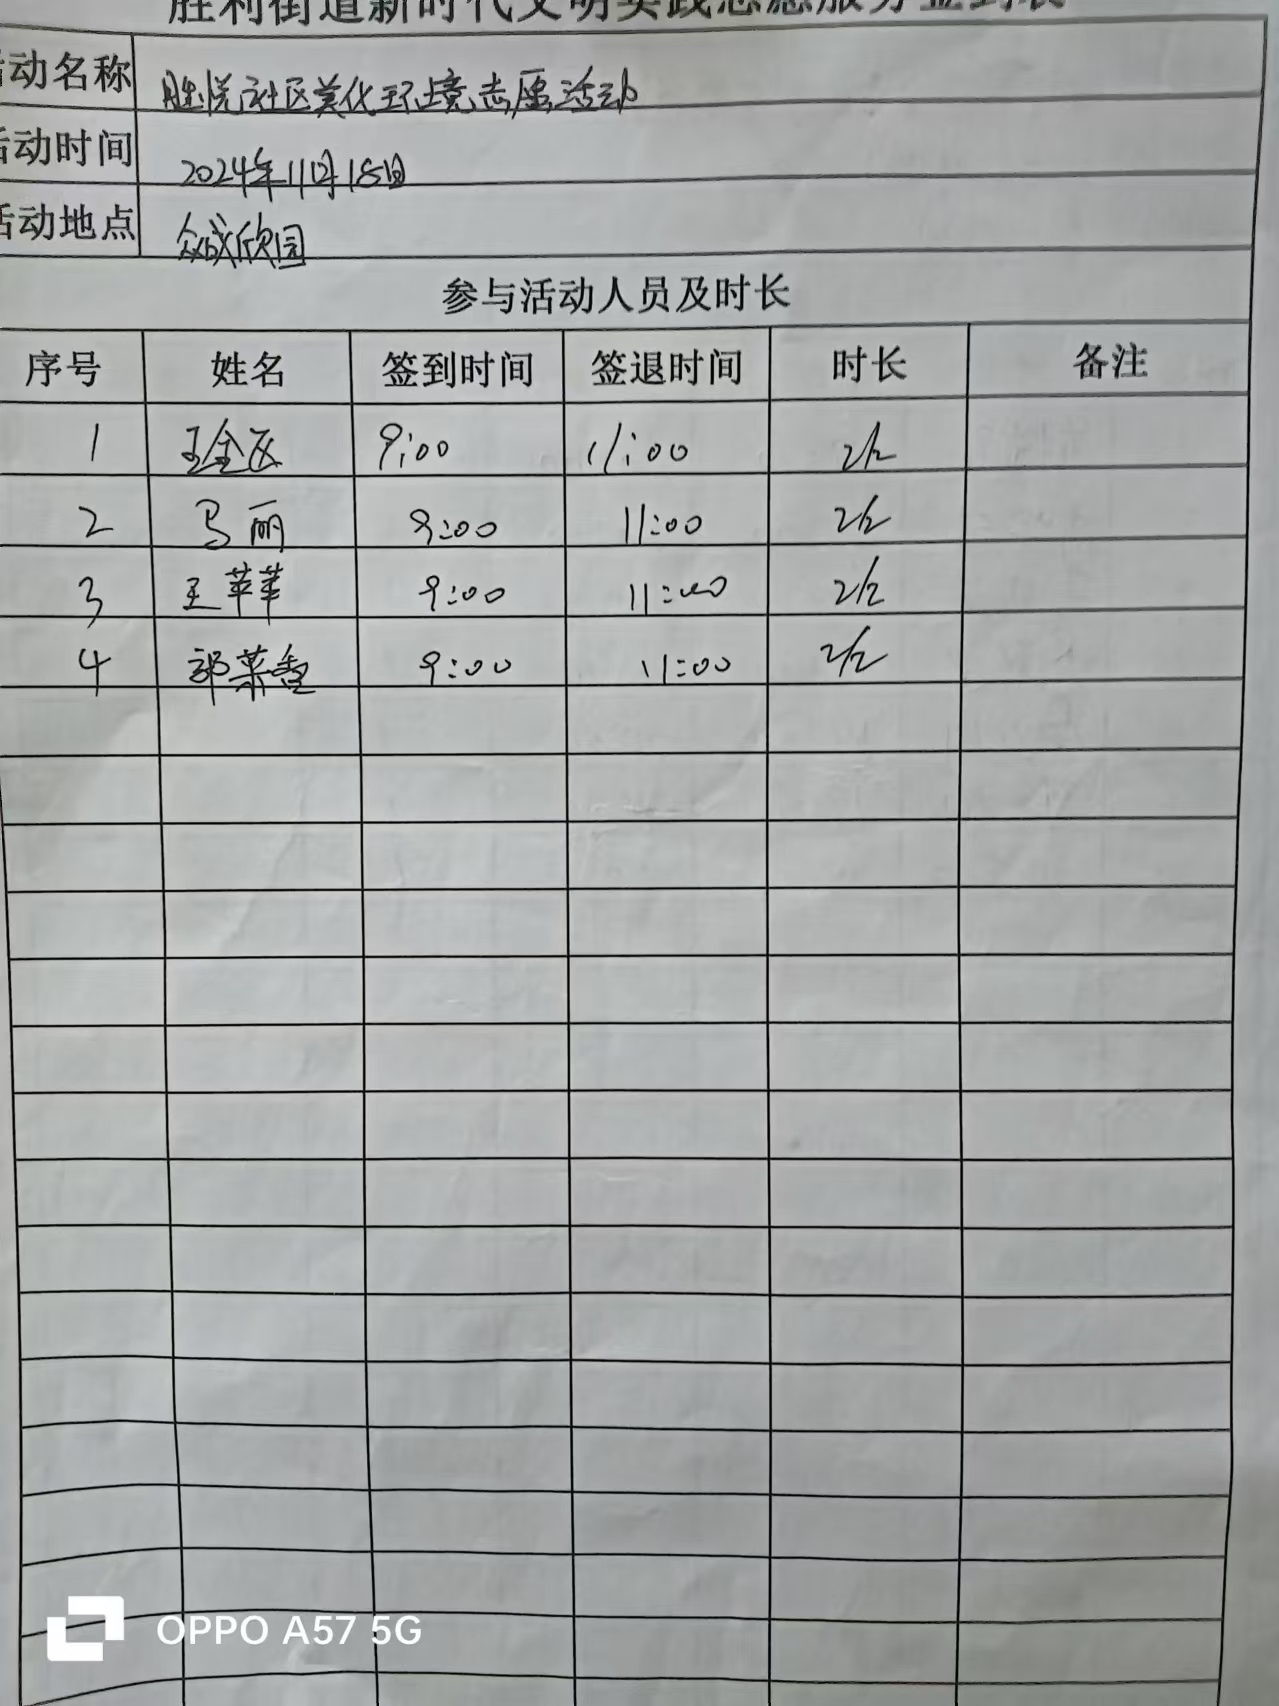 胜利街道新时代文明实践志愿服务签到表
活动名称 胜悦社区美化环境志愿活动
活动时间 2024年11月18日
活动地点 众成欣园
参与活动人员及时长
序号 姓名 签到时间 签退时间 时长 备注
1 9:00 11:00 2h
2 马丽 9:00 11:00 2h
3 王苹苹 9:00 11:00 2h
4 郭菜香 9:00 11:00 2h
OPPO A57 5G